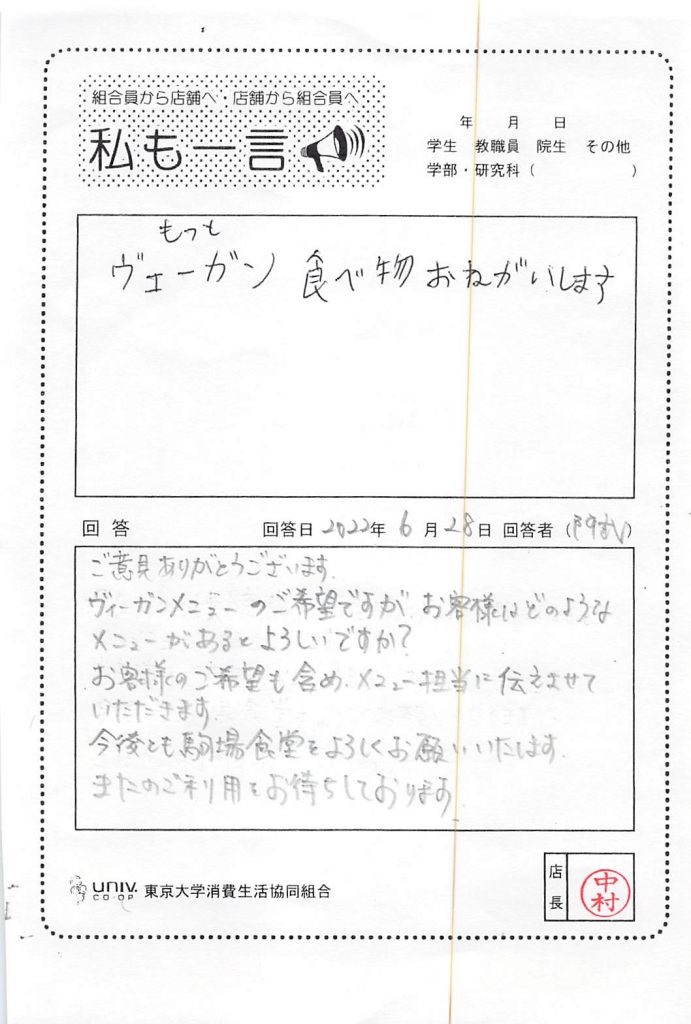 組合員から店舗へ・店舗から組合員へ
私も一言
年 月 日
学生 教職員 院生 その他
学部・研究科( )
もっと
ヴェーガン 食べ物 おねがいします
回答 回答日 2022年 6月 28日 回答者( )
ご意見ありがとうございます。
ヴィーガンメニューのご希望ですが、お客様はどのような
メニューがあるとよろしいですか?
お客様のご希望も含め、メニュー担当に伝えさせて
いただきます。
今後とも駒場食堂をよろしくお願いいたします。
またのご利用をお待ちしております。
univ. CO-OP 東京大学消費生活協同組合
店長
中村